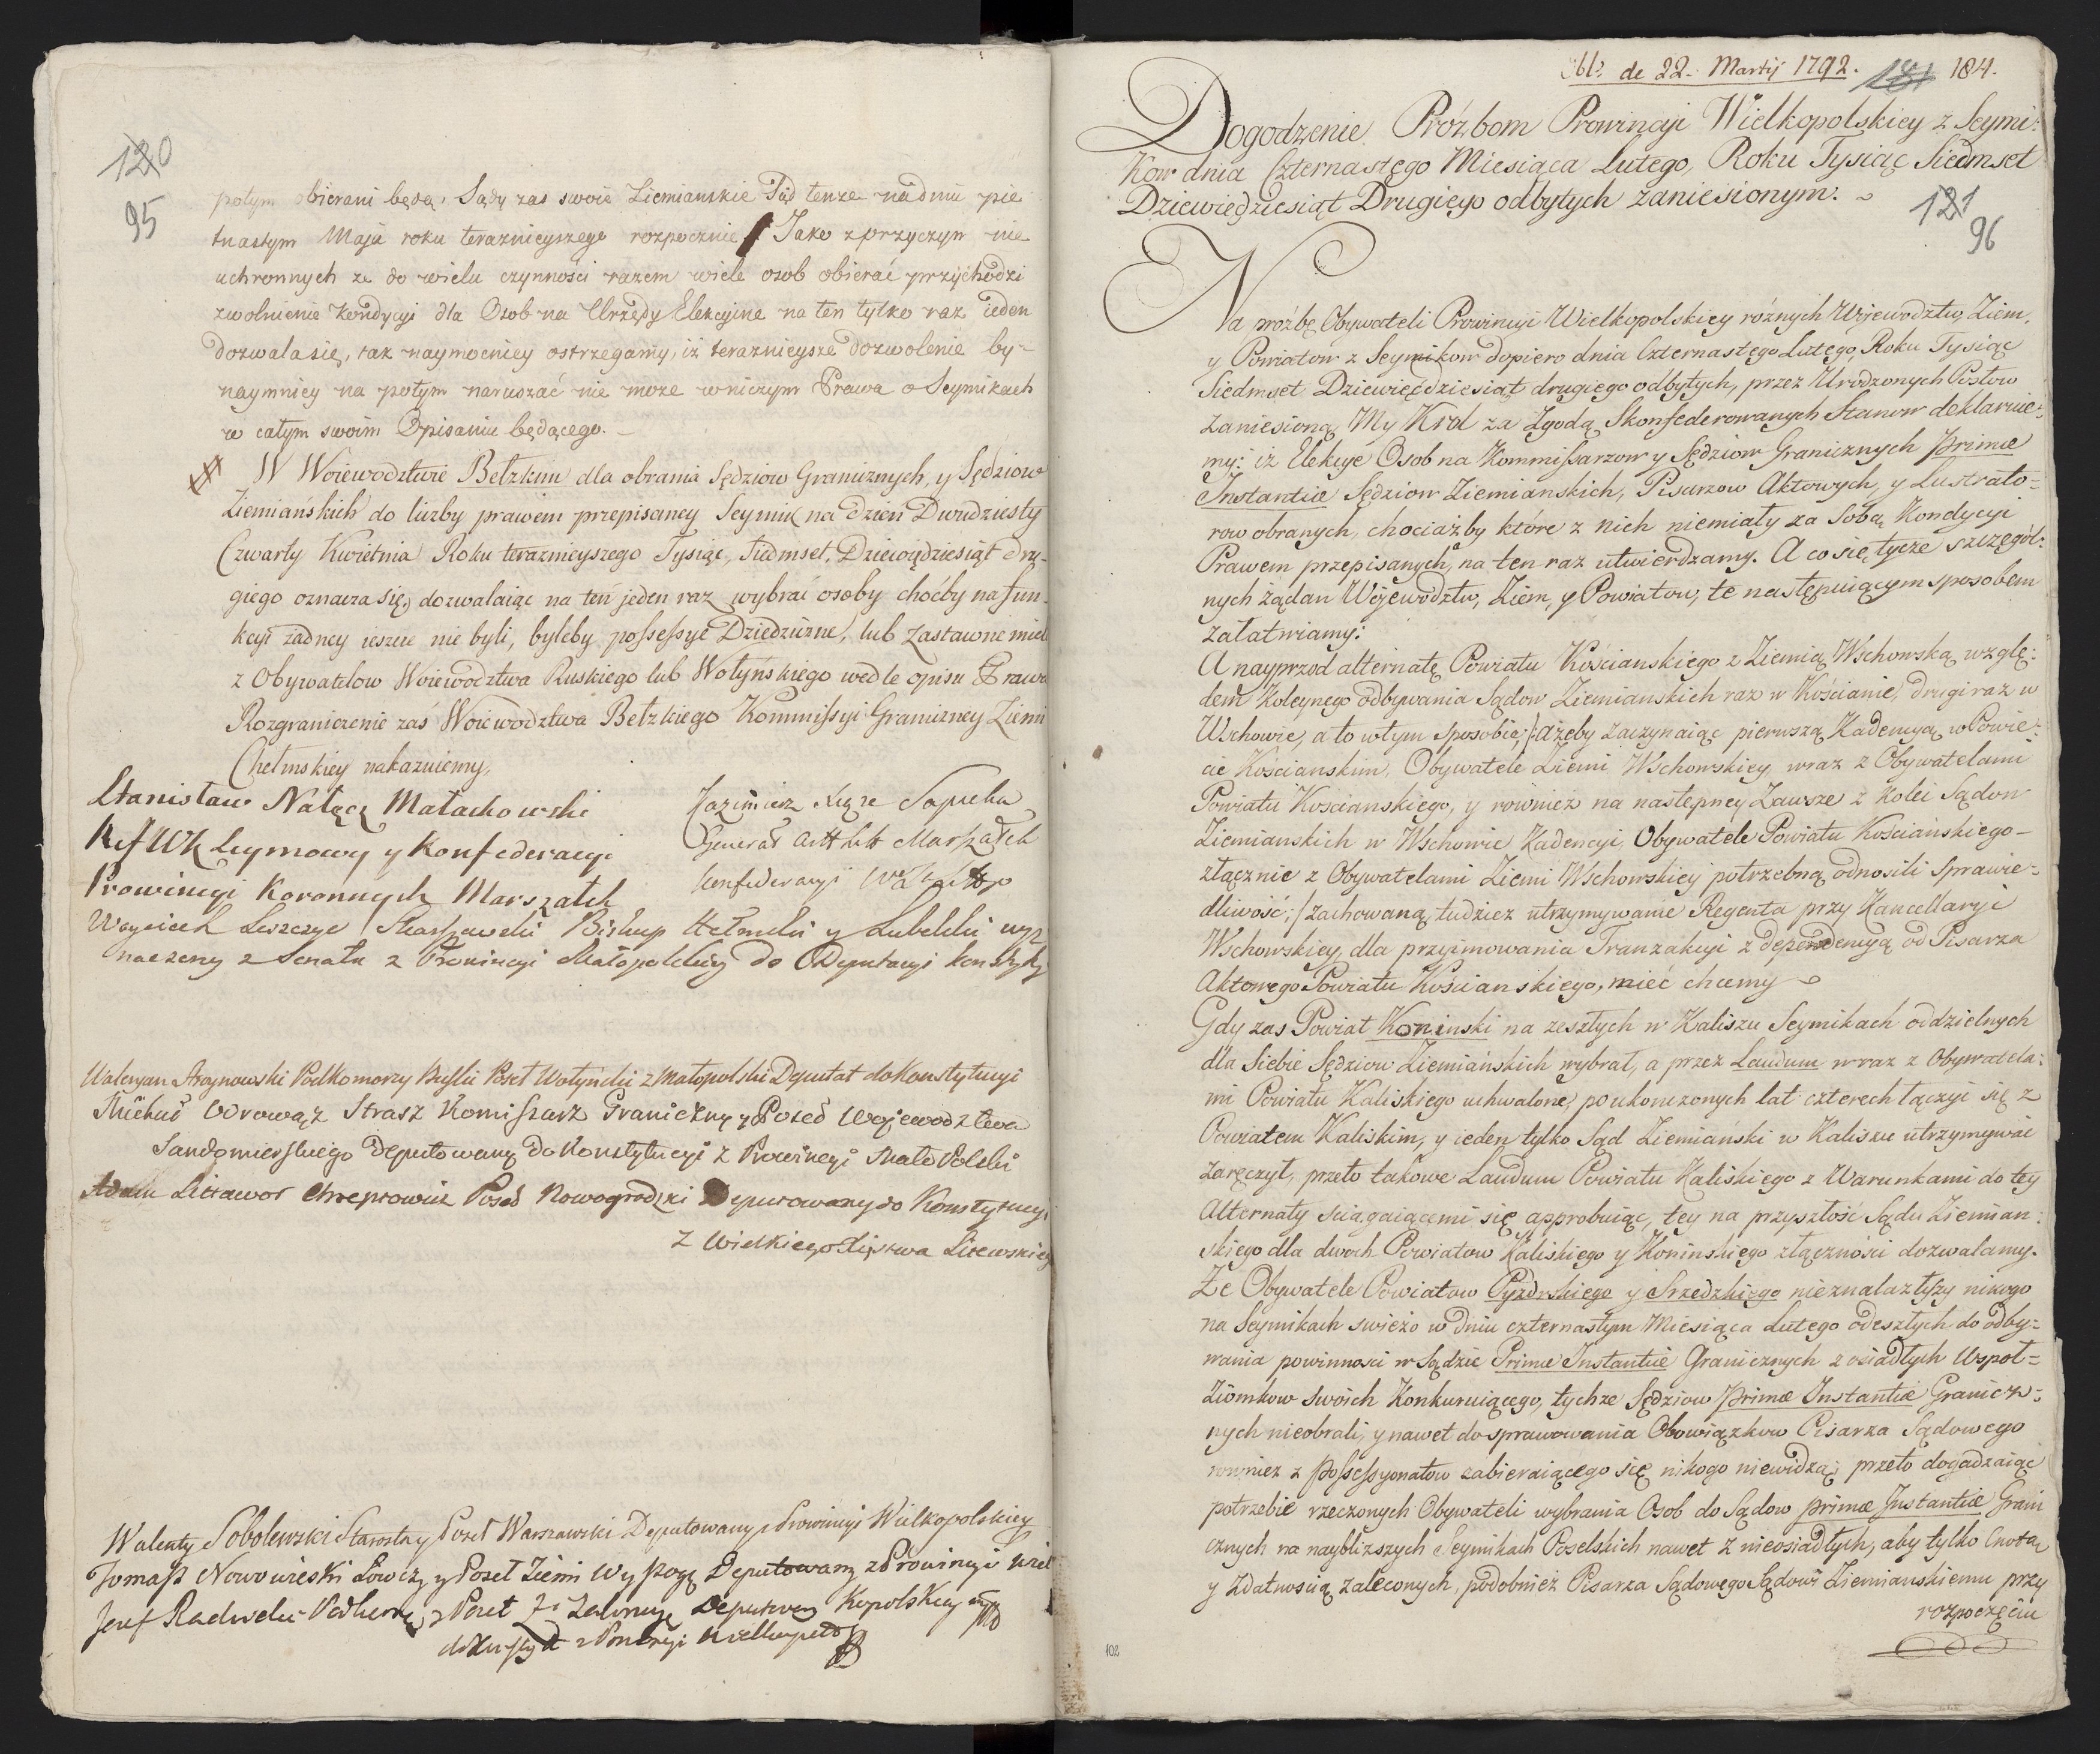 120
95
potym obierani będą. Sądy zas swoie Ziemianskie Sąd tenze na dniu pie
tnastym Maja roku teraznieyszego rozpocznie. Jako z przyczyn nie
uchronnych ze do wielu czynnosci razem wiele osob obierać przychodzi
zwolnienie kondycyi dla Osob na Urzędy Elekcyine na ten tylko raz ieden
dozwala się, tak naymocniey ostrzegamy, iż teraznieysze dozwolenie by-
naymniey na potym naruszać nie może w niczym Prawa o Seymikach
w całym swoim Opisaniu będącego.
W Woiewodztwie Bełzkim dla obrania Sędziow Granicznych, y Sędziow
Ziemiańskich do liczby prawem przepisaney Seymik na dzien Dwudziesty
Czwarty Kwietnia Roku teraznieyszego Tysiąc, Siedmset, Dziewiędziesiąt dru-
giego oznacza się, dozwalaiąc na ten jeden raz wybrać osoby choćby na fun-
kcyi żadney ieszcze nie byli, byleby possessye Dziedziczne, lub Zastawne mieli
z Obywatelow Woiewodztwa Ruskiego lub Wołyńskiego wedle opisu Prawa
Rozgraniczenie zaś Woiewodztwa Bełzkiego Kommissyi Graniczney Ziemi
Chełmskiey nakazuiemy.
Stanisław Nałęcz Małachowski
Ref WK Seymowy y Konfederacyi
Prowincyi Koronnych Marszałek
Kazimierz Xiąże Sapieha
Generał Art Litt Marszałek
Konfederacyi W X Litto
Woyciech Leszczyc Skarszewski Biskup Chełmski y Lubelski wyz
naczony z Senatu z Prowincyi Małopolskiey do Deputacyi konstyty
Waleryan Stroynowski Podkomorzy Buski Poseł Wołyński z Małopolski Deputat do Konstytucyi
Michał Odrowąż Strasz Komissarz Graniczny y Poseł Wojewodztwa
Sandomierskiego Deputowany do Konstytucyi z Prowincyi Mało Polski
Adam Littawor Chreptowicz Poseł Nowogrodzki Deputowany do Konstytucyi
Z Wielkiego Xięstwa Litewskiego
Walenty Sobolewski Starosta y Poseł Warszawski Deputowany z Prowincyi Wielkopolskiey
Tomasz Nowowieski Łowczy y Poseł Ziemi Wyszogr Deputowany z Prowincyi Wiel
kopolskiey mp
Jozef Radzicki Podkomorzy y Poseł Zi Zakroczy Deputowany
do Konstyt z Prowincyi Wielkopols
Obl. de 22. Martij 1792. 181 184.
Dogodzenie Próźbom Prowincyi Wielkopolskiey z Seymi:
Kow dnia Czternastego Miesiąca Lutego, Roku Tysiąc Siedmset
Dziewiędziesiąt Drugiego odbytych zaniesionym.
121
96
Na proźbę Obywateli Prowincyi Wielkopolskiey różnych Wojewodztw, Ziem,
y Powiatow z Seymikow dopiero dnia Czternastego Lutego Roku Tysiąc
Siedmset Dziewięćdziesiąt drugiego odbytych, przez Urodzonych Posłow
zaniesioną, My Krol za Zgodą Skonfederowanych Stanow deklaruie:
my: iż Elekcye Osob na Kommissarzow y Sędziow Granicznych primæ
Instantiæ Sędziow Ziemianskich, Pisarzow Aktowych, y Lustrato-
row obranych, chociażby które z nich niemiały za Sobą Kondycyi
Prawem przepisanych, na ten raz utwierdzamy. A co się tycze szczegól:
nych żądan Wojewodztw, Ziem, y Powiatow, te następuiącym sposobem
załatwiamy:
A nayprzod alternatę Powiatu Kościanskiego z Ziemią Wschowską wzglę:
dem Koleynego odbywania Sądow Ziemianskich raz w Kościanie, drugi raz w
Wschowie, a to w tym sposobie; /: ażeby zaczynaiąc pierwszą Kadencyą w Powie:
cie Kościanskim, Obywatele Ziemi Wschowskiey, wraz z Obywatelami
Powiatu Koscianskiego, y rownież na nastepney Zawsze z Kolei Sądow
Ziemianskich w Wschowie Kadencyi, Obywatele Powiatu Kościańskiego-
złącznie z Obywatelami Ziemi Wschowskiey potrzebną odnosili Sprawie:
dliwość; :/ zachowaną, tudzież utrzymywanie Regenta przy Kancellaryi
Wschowskiey, dla przyimowania Tranzakcyi z dependencyą od Pisarza
Aktowego Powiatu Kościanskiego, mieć chcemy
Gdy zas Powiat Koninski na zeszłych w Kaliszu Seymikach oddzielnych
dla Siebie Sędziow Ziemiańskich wybrał, a przez Laudum wraz z Obywatela:
mi Powiatu Kaliskiego uchwalone, po ukonczonych lat czterech łączyć się z
Powiatem Kaliskim, y ieden tylko Sąd Ziemiański w Kaliszu utrzymywać
zaręczył, przeto takowe Laudum Powiatu Kaliskiego z Warunkami do tey
Alternaty ściągaiącemi się approbuiąc, tey na przyszłość Sądu Ziemian:
skiego dla dwoch Powiatow Kaliskiego y Koninskiego złączności dozwalamy.
Że Obywatele Powiatow Pyzdrskiego y Srzedzkiego nieznalazłszy nikogo
na Seymikach swieżo w dniu czternastym Miesiąca Lutego odeszłych do odby-
wania powinnosci w Sądzie Primæ Instantiæ Granicznych z osiadłych Współ=
Ziomkow swoich Konkuruiącego, tychze Sędziow primæ Instantiæ Granicz-
nych nieobrali, y nawet do sprawowania Obowiązkow Pisarza Sądowego
rownież z possessyonatow zabieraiącego się nikogo niewidzą; przeto dogadzaiąc
potrzebie rzeczonych Obywateli wybrania Osob do Sądow primæ Instantiæ Grani
cznych na nayblizszych Seymikach Poselskich nawet z nieosiadłych, aby tylko Cnotą
y Zdatnoscią zaleconych, podobnież Pisarza Sądowego Sądowi Ziemianskiemu przy
rozpoczęciu
102